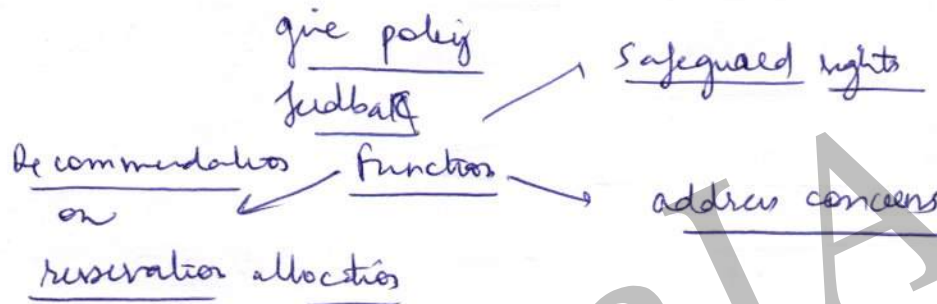 give policy
feedback
Safeguard rights
Recommendations
on
reservation allocation
Functions
address concerns
IA